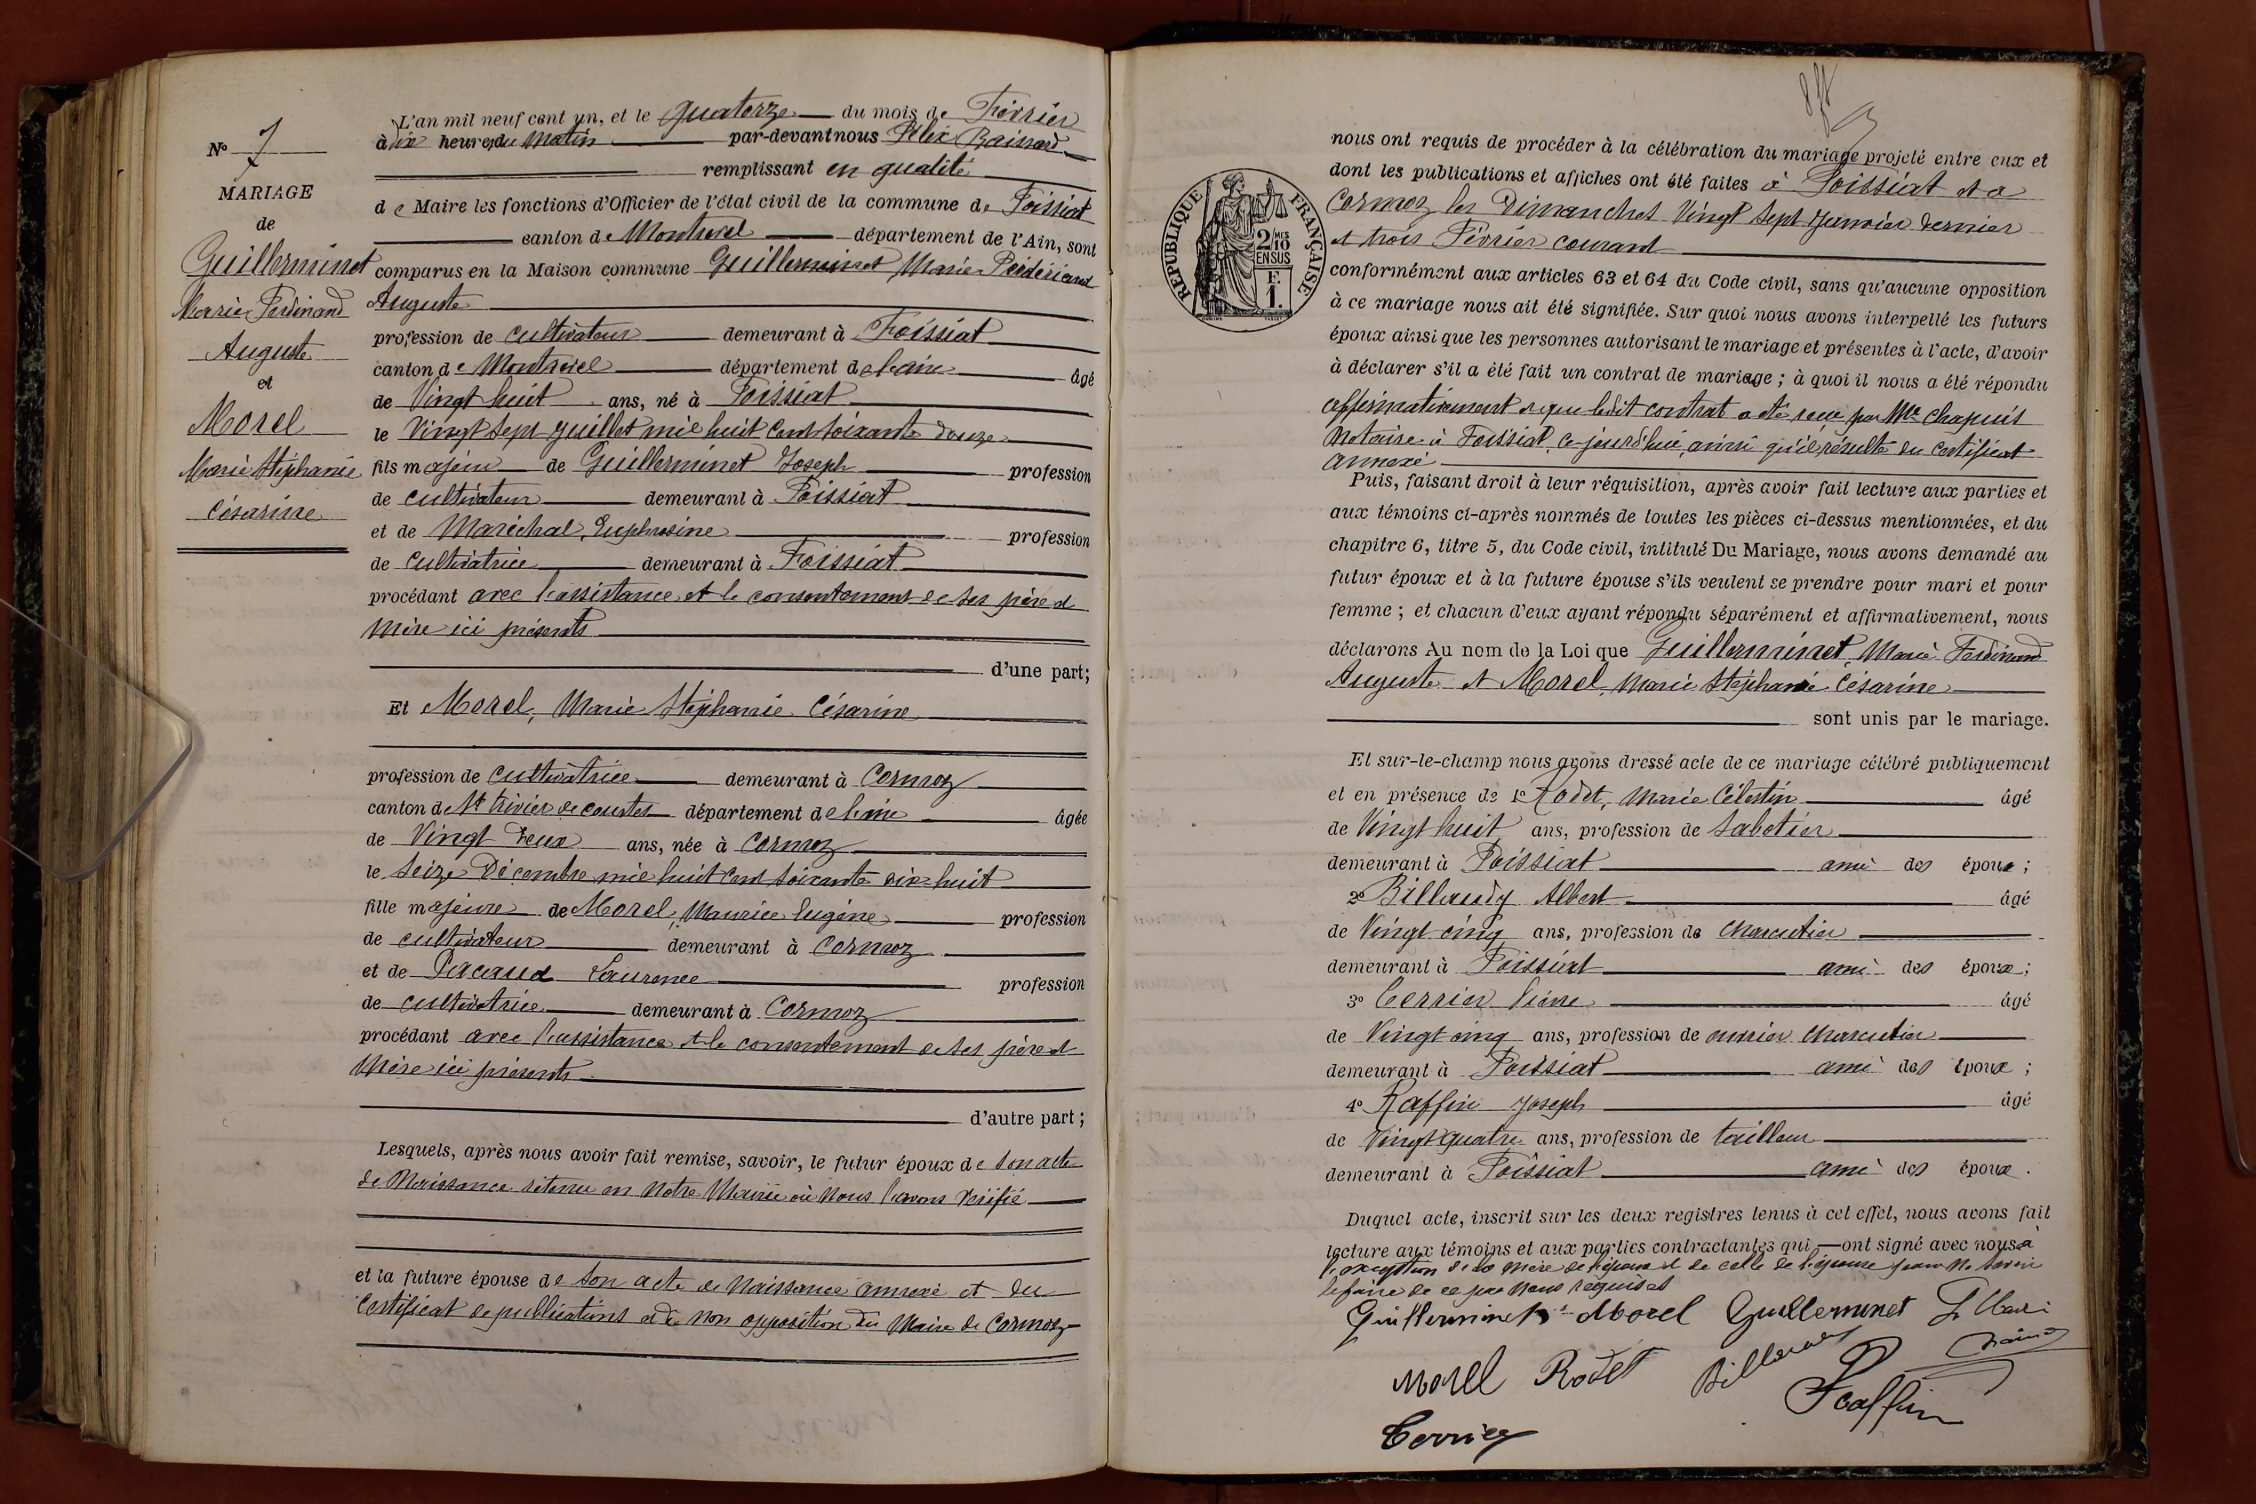 N° 7
MARIAGE
de
Guillerminet
Marie Ferdinand
Auguste
et
Morel
Marie Stéphanie
Césarine
L'an mil neuf cent un, et le quatorze du mois de Février
à dix heures du matin par-devant nous Félix
remplissant en qualité
de Maire les fonctions d'Officier de l'état civil de la commune de Foissiat
canton de Montrevel département de l'Ain, sont
comparus en la Maison commune Guillerminet Marie Ferdinand
Auguste
profession de cultivateur demeurant à Foissiat
canton de Montrevel département de l'ain âgé
de Vingt huit ans, né à Foissiat
le Vingt sept Juillet mil huit cent soixante douze
fils majeur de Guillerminet Joseph profession
de cultivateur demeurant à Foissiat
et de Maréchal, Euphrosine profession
de cultivatrice demeurant à Foissiat
procédant avec l'assistance et le consentement de ses père et
mère ici présents
d'une part;
Et Morel, Marie Stéphanie Césarine
profession de cultivatrice demeurant à Cormoz
canton de St trivier de courtes département de l'ain âgée
de Vingt deux ans, née à Cormoz
le Seize Décembre mil huit cent soixante dix huit
fille majeure de Morel, Maurice Eugène profession
de cultivateur demeurant à Cormoz
et de Pacaud Laurence profession
de cultivatrice demeurant à Cormoz
procédant avec l'assistance et le consentement de ses père et
Mère ici présents
d'autre part;
Lesquels, après nous avoir fait remise, savoir, le futur époux de son acte
de Naissance retenu en notre Mairie où nous l'avons vérifié
et la future épouse de son acte de Naissance annexé et du
Certificat de publications et de non opposition du Maire de Cormoz
RÉPUBLIQUE FRANÇAISE
2 MES
10
EN SUS
F.
1.
nous ont requis de procéder à la célébration du mariage projeté entre eux et
dont les publications et affiches ont été faites à Foissiat et à
Cormoz les Dimanches Vingt sept Janvier dernier
et trois Février courant
conformément aux articles 63 et 64 du Code civil, sans qu'aucune opposition
à ce mariage nous ait été signifiée. Sur quoi nous avons interpellé les futurs
époux ainsi que les personnes autorisant le mariage et présentes à l'acte, d'avoir
à déclarer s'il a été fait un contrat de mariage; à quoi il nous a été répondu
affirmativement et que ledit contrat a été reçu par Me Chapuis
Notaire à Foissiat, ce jourd'hui, ainsi qu'il résulte du certificat
annexé
Puis, faisant droit à leur réquisition, après avoir fait lecture aux parties et
aux témoins ci-après nommés de toutes les pièces ci-dessus mentionnées, et du
chapitre 6, titre 5, du Code civil, intitulé Du Mariage, nous avons demandé au
futur époux et à la future épouse s'ils veulent se prendre pour mari et pour
femme; et chacun d'eux ayant répondu séparément et affirmativement, nous
déclarons Au nom de la Loi que Guillerminet, Marie Ferdinand
Auguste et Morel, Marie Stéphanie Césarine
sont unis par le mariage.
Et sur-le-champ nous avons dressé acte de ce mariage célébré publiquement
et en présence de 1° Rodet, Marie Célestin âgé
de Vingt huit ans, profession de Sabotier
demeurant à Foissiat ami des époux;
2° Billoudy Albert âgé
de Vingt cinq ans, profession de charcutier
demeurant à Foissiat ami des époux;
3° Terrier Pierre âgé
de Vingt cinq ans, profession de ouvrier charcutier
demeurant à Foissiat ami des époux;
4° Raffin Joseph âgé
de Vingt quatre ans, profession de tailleur
demeurant à Foissiat ami des époux.
Duquel acte, inscrit sur les deux registres tenus à cet effet, nous avons fait
lecture aux témoins et aux parties contractantes qui ont signé avec nous à
l'exception de la mère de l'époux et de celle de l'épouse pour ne savoir
le faire de ce par nous requises
Guillerminet Morel Guillerminet
Morel Rodet Raffin
Terrier